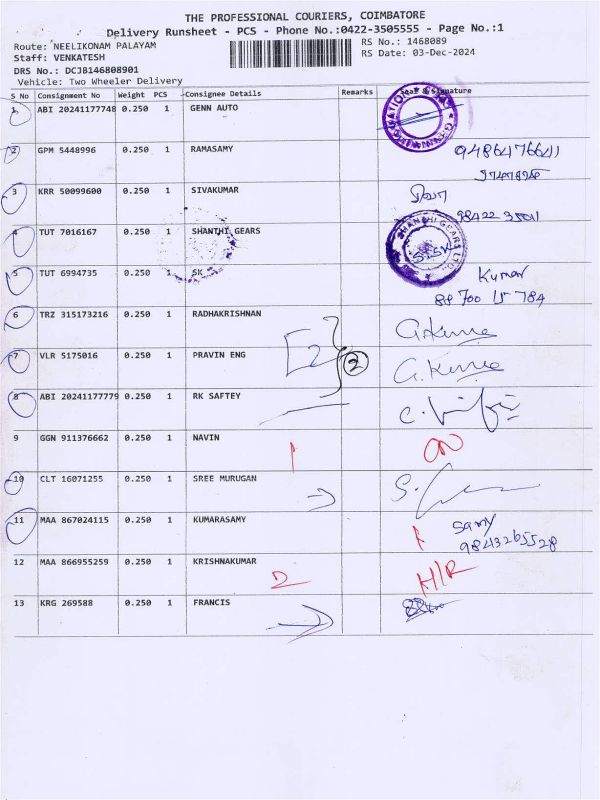 THE PROFESSIONAL COURIERS, COIMBATORE
Delivery Runsheet - PCS - Phone No.:0422-3505555 - Page No.:1
Route: NEELIKONAM PALAYAM
RS No.: 1468089
Staff: VENKATESH
RS Date: 03-Dec-2024
DRS No.: DCJB146808901
Vehicle: Two Wheeler Delivery
S No Consignment No Weight PCS Consignee Details Remarks Seal & Signature
1 ABI 20241177748 0.250 1 GENN AUTO
2 GPM 5448996 0.250 1 RAMASAMY 9486476641
3 KRR 50099600 0.250 1 SIVAKUMAR
98422 35011
4 TUT 7016167 0.250 1 SHANTHI GEARS SHANTHI GEARS LTD.
5 TUT 6994735 0.250 1 SK S.SK Kumar
88 700 15 784
6 TRZ 315173216 0.250 1 RADHAKRISHNAN G.Kuma
2 2
7 VLR 5175016 0.250 1 PRAVIN ENG G.Kuma
8 ABI 20241177779 0.250 1 RK SAFTEY
9 GGN 911376662 0.250 1 NAVIN 1
10 CLT 16071255 0.250 1 SREE MURUGAN
11 MAA 867024115 0.250 1 KUMARASAMY Samy
9843265528
12 MAA 866955259 0.250 1 KRISHNAKUMAR 2 H/R
13 KRG 269588 0.250 1 FRANCIS